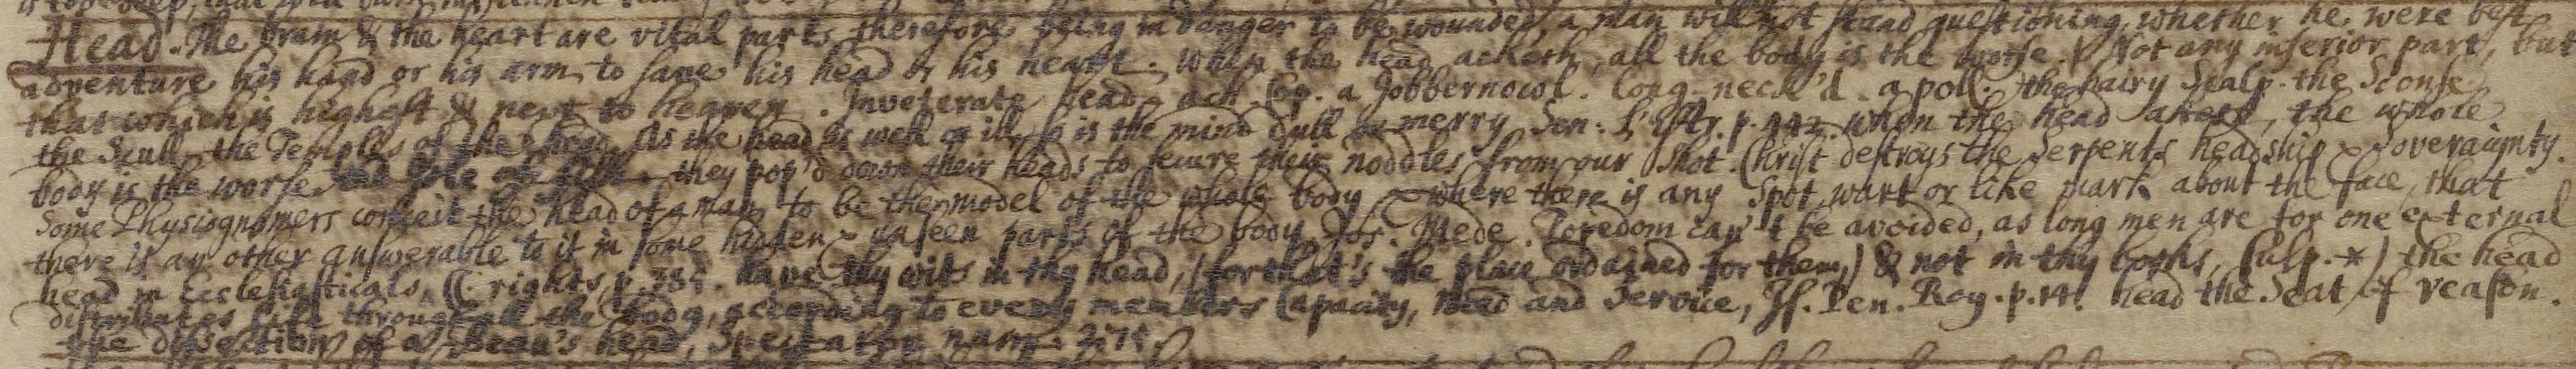 Head. The brain & the heart are vital parts, therefore being in danger to be wounded, a man will not stand questioning, whether he were best
adventure his hand or his arm, to save his head or his heart. When the head acheth, all the body is the worse. Not any inferior part, but
that which is highest & next to heaven. Inveterate head-ach. a Jobbernowl. long-neck'd. a poll. the hairy Scalp. the Sconse
the Scull, the Temples of the head. As the head is well or ill, so is the mind dull or merry. Sen: when the head aketh, the whole
body is the worse. they pop'd down their heads to secure their noddles from our shot. Christ destroys the Serpents headship & soveraignty.
Some Physiognomers conceit the head of a man to be the model of the whole body, & where there is any Spot, wart or like mark about the face, that
there is an other answerable to it in some hidden & unseen parts of the body. Jos. Mede. can't be avoided, as long men are for one external
head in Ecclesiasticals, rights, p. have thy wits in thy head, (for that's the place ordained for them,) & not in thy books, Culp. *) the head
distributes life through all the body, according to every members capacity, need and service, Is. Pen. Roy. p. head the Seat of reason.
the dissection of a Beau's head, Spectator num. 275.